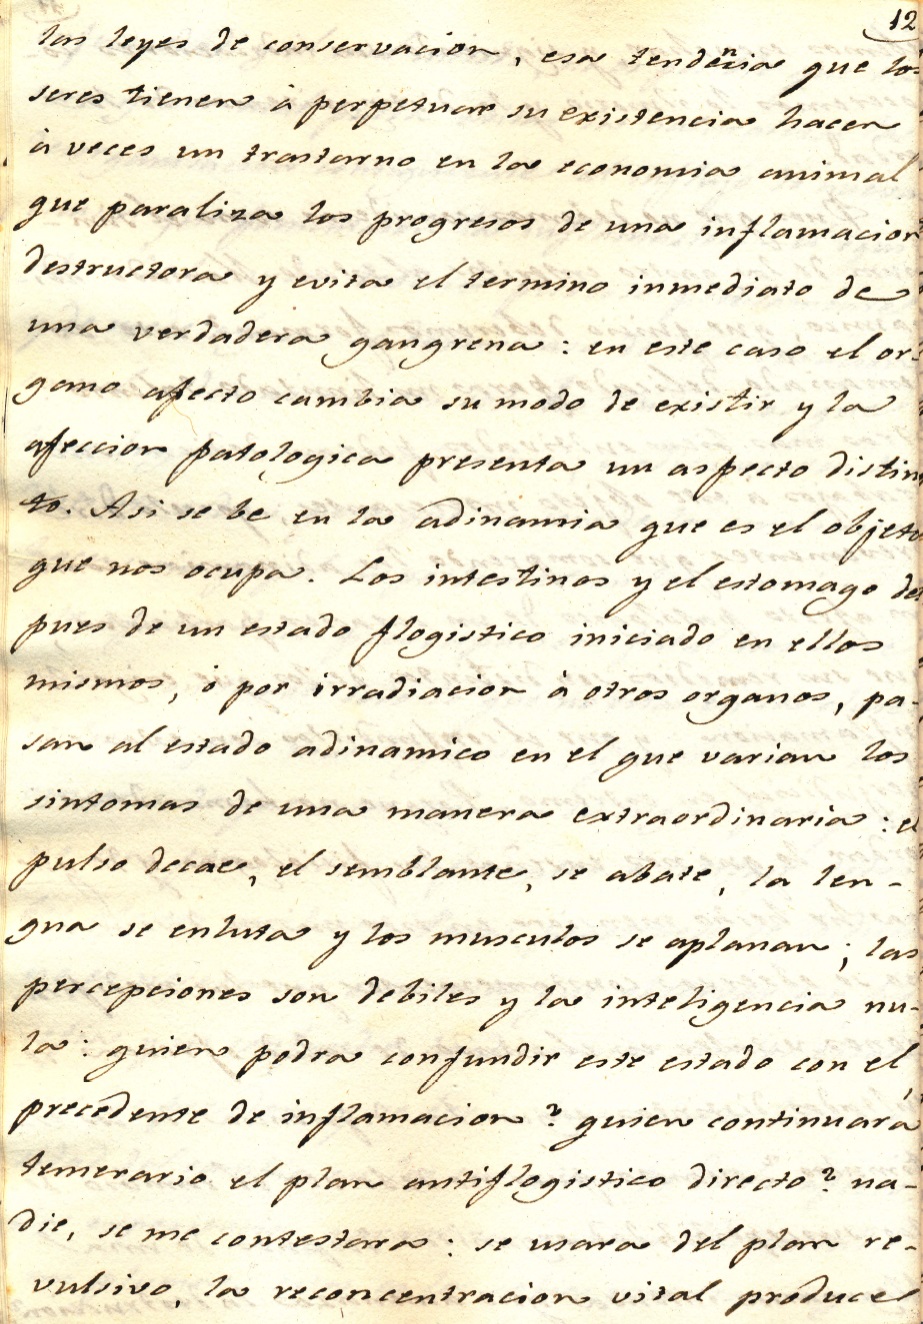 12
las leyes de conservacion, esa tendencia que los
seres tienen à perpetuar su existencia hacen
à veces un trastorno en la economia animal
que paraliza los progresos de una inflamacion
destructora y evita el termino inmediato de
una verdadera gangrena: en este caso el or-
gano afecto cambia su modo de existir y la
afeccion patologica presenta un aspecto distin
to. Asi se be en la adinamia que es el objeto
que nos ocupa. Los intestinos y el estomago des
pues de un estado flogistico iniciado en ellos
mismos, ò por irradiacion à otros organos, pa-
san al estado adinamico en el que varian los
sintomas de una manera extraordinaria: el
pulso decae, el semblante, se abate, la len-
gua se enluta y los musculos se aplanan; las
percepciones son debiles y la inteligencia nu-
la: quien podra confundir este estado con el
precedente de inflamacion? quien continuara
temerario el plan antiflogistico directo? na-
die, se me contestara: se usara del plan re-
vulsivo, la reconcentracion vital produce